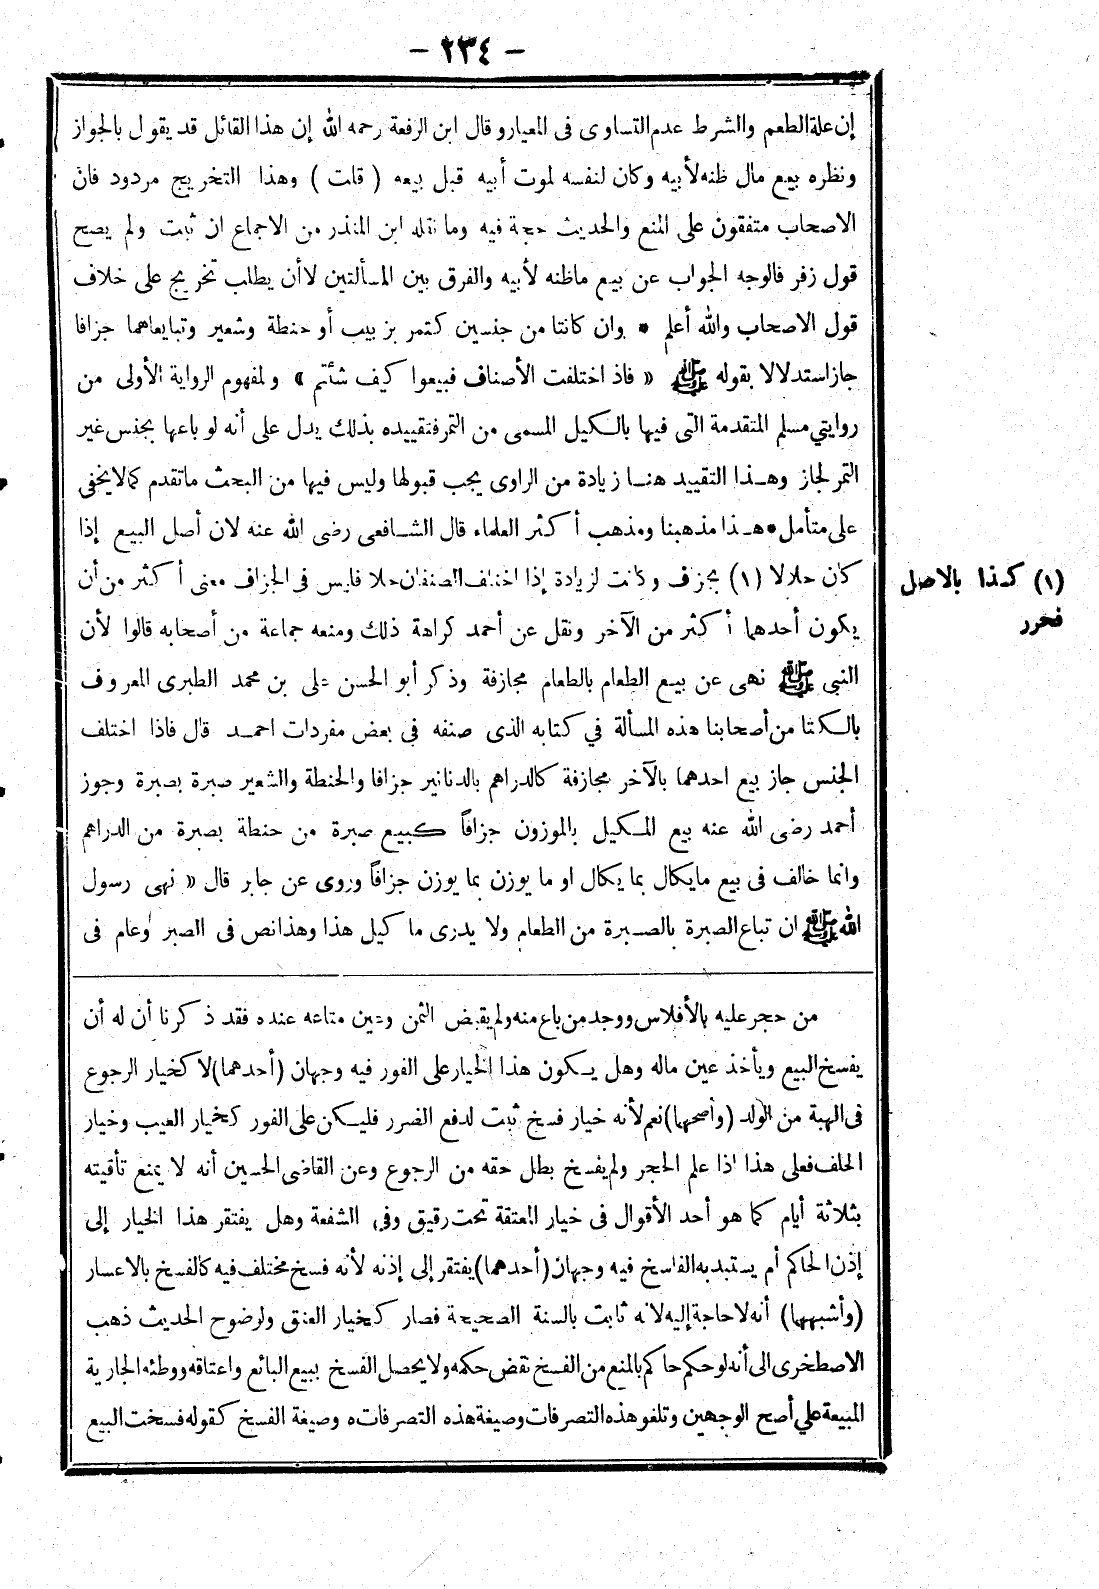 - ٢٣٤ -
إن علة الطعم والشرط عدم التساوى فى المعيار وقال ابن الرفعة رحمه الله إن هذا القائل قد يقول بالجواز
ونظره ببيع مال ظنه لأبيه وكان لنفسه لموت أبيه قبل بيعه ( قلت ) وهذا التخريج مردود فان
الاصحاب متفقون على المنع والحديث حجة فيه وما نقله ابن المنذر من الاجماع ان ثبت ولم يصح
قول زفر فالوجه الجواب عن بيع ماظنه لأبيه والفرق بين المسألتين لا أن يطلب تخريج على خلاف
قول الاصحاب والله أعلم * وان كانتا من جنسين كتمر بزبيب أو حنطة وشعير وتبايعاهما جزافا
جاز استدلالا بقوله ﷺ « فاذ اختلفت الأصناف فبيعوا كيف شئتم » ولمفهوم الرواية الأولى من
روايتي مسلم المتقدمة التى فيها بالكيل المسمى من التمر فتقييده بذلك يدل على أنه لو باعها بجنس غير
التمر لجاز وهذا التقييد هنا زيادة من الراوى يجب قبولها وليس فيها من البحث ماتقدم كما لا يخفى
على متأمل * هذا مذهبنا ومذهب أكثر العلماء قال الشافعى رضى الله عنه لان أصل البيع إذا
كان حلالا (١) بجزف وكانت لزيادة إذا اختلف الصنفان حلا فليس فى الجزاف معنى أكثر من أن
يكون أحدهما أكثر من الآخر ونقل عن أحمد كراهة ذلك ومنعه جماعة من أصحابه قالوا لأن
النبى ﷺ نهى عن بيع الطعام بالطعام مجازفة وذكر أبو الحسن على بن محمد الطبرى المعروف
بالكثا من أصحابنا هذه المسألة في كتابه الذى صنفه فى بعض مفردات احمد قال فاذا اختلف
الجنس جاز بيع احدهما بالآخر مجازفة كالدراهم بالدنانير جزافا والحنطة والشعير صبرة بصبرة وجوز
أحمد رضى الله عنه بيع المكيل بالموزون جزافاً كبيع صبرة من حنطة بصبرة من الدراهم
وانما خالف فى بيع مايكال بما يكال او ما يوزن بما يوزن جزافاً وروى عن جابر قال « نهى رسول
الله ﷺ ان تباع الصبرة بالصبرة من الطعام ولا يدرى ما كيل هذا وهذا نص فى الصبر وعام فى
(١) كذا بالاصل
فحرر
من حجر عليه بالأفلاس ووجد من باع منه ولم يقبض الثمن وعين متاعه عنده فقد ذكرنا أن له أن
يفسخ البيع ويأخذ عين ماله وهل يكون هذا الخيار على الفور فيه وجهان (أحدهما) لا كخيار الرجوع
فى الهبة من الولد (وأصحها) نعم لأنه خيار فسخ ثبت لدفع الضرر فليكن على الفور كخيار العيب وخيار
الخلف فعلى هذا اذا علم الحجر ولم يفسخ بطل حقه من الرجوع وعن القاضى الحسين أنه لا يمنع تأقيته
بثلاثة أيام كما هو أحد الأقوال فى خيار المعتقة تحت رقيق وفى الشفعة وهل يفتقر هذا الخيار إلى
إذن الحاكم أم يستبد به الفاسخ فيه وجهان (أحدهما) يفتقر إلى إذنه لأنه فسخ مختلف فيه كالفسخ بالاعسار
(وأشبهها) أنه لاحاجة إليه لانه ثابت بالسنة الصحيحة فصار كخيار العتق ولوضوح الحديث ذهب
الاصطخرى الى أنه لو حكم حاكم بالمنع من الفسخ نقض حكمه ولا يحصل الفسخ ببيع البائع واعتاقه ووطئه الجارية
المبيعة علي أصح الوجهين وتلغو هذه التصرفات وصيغة هذه التصرفات ه وصيغة الفسخ كقوله فسخت البيع